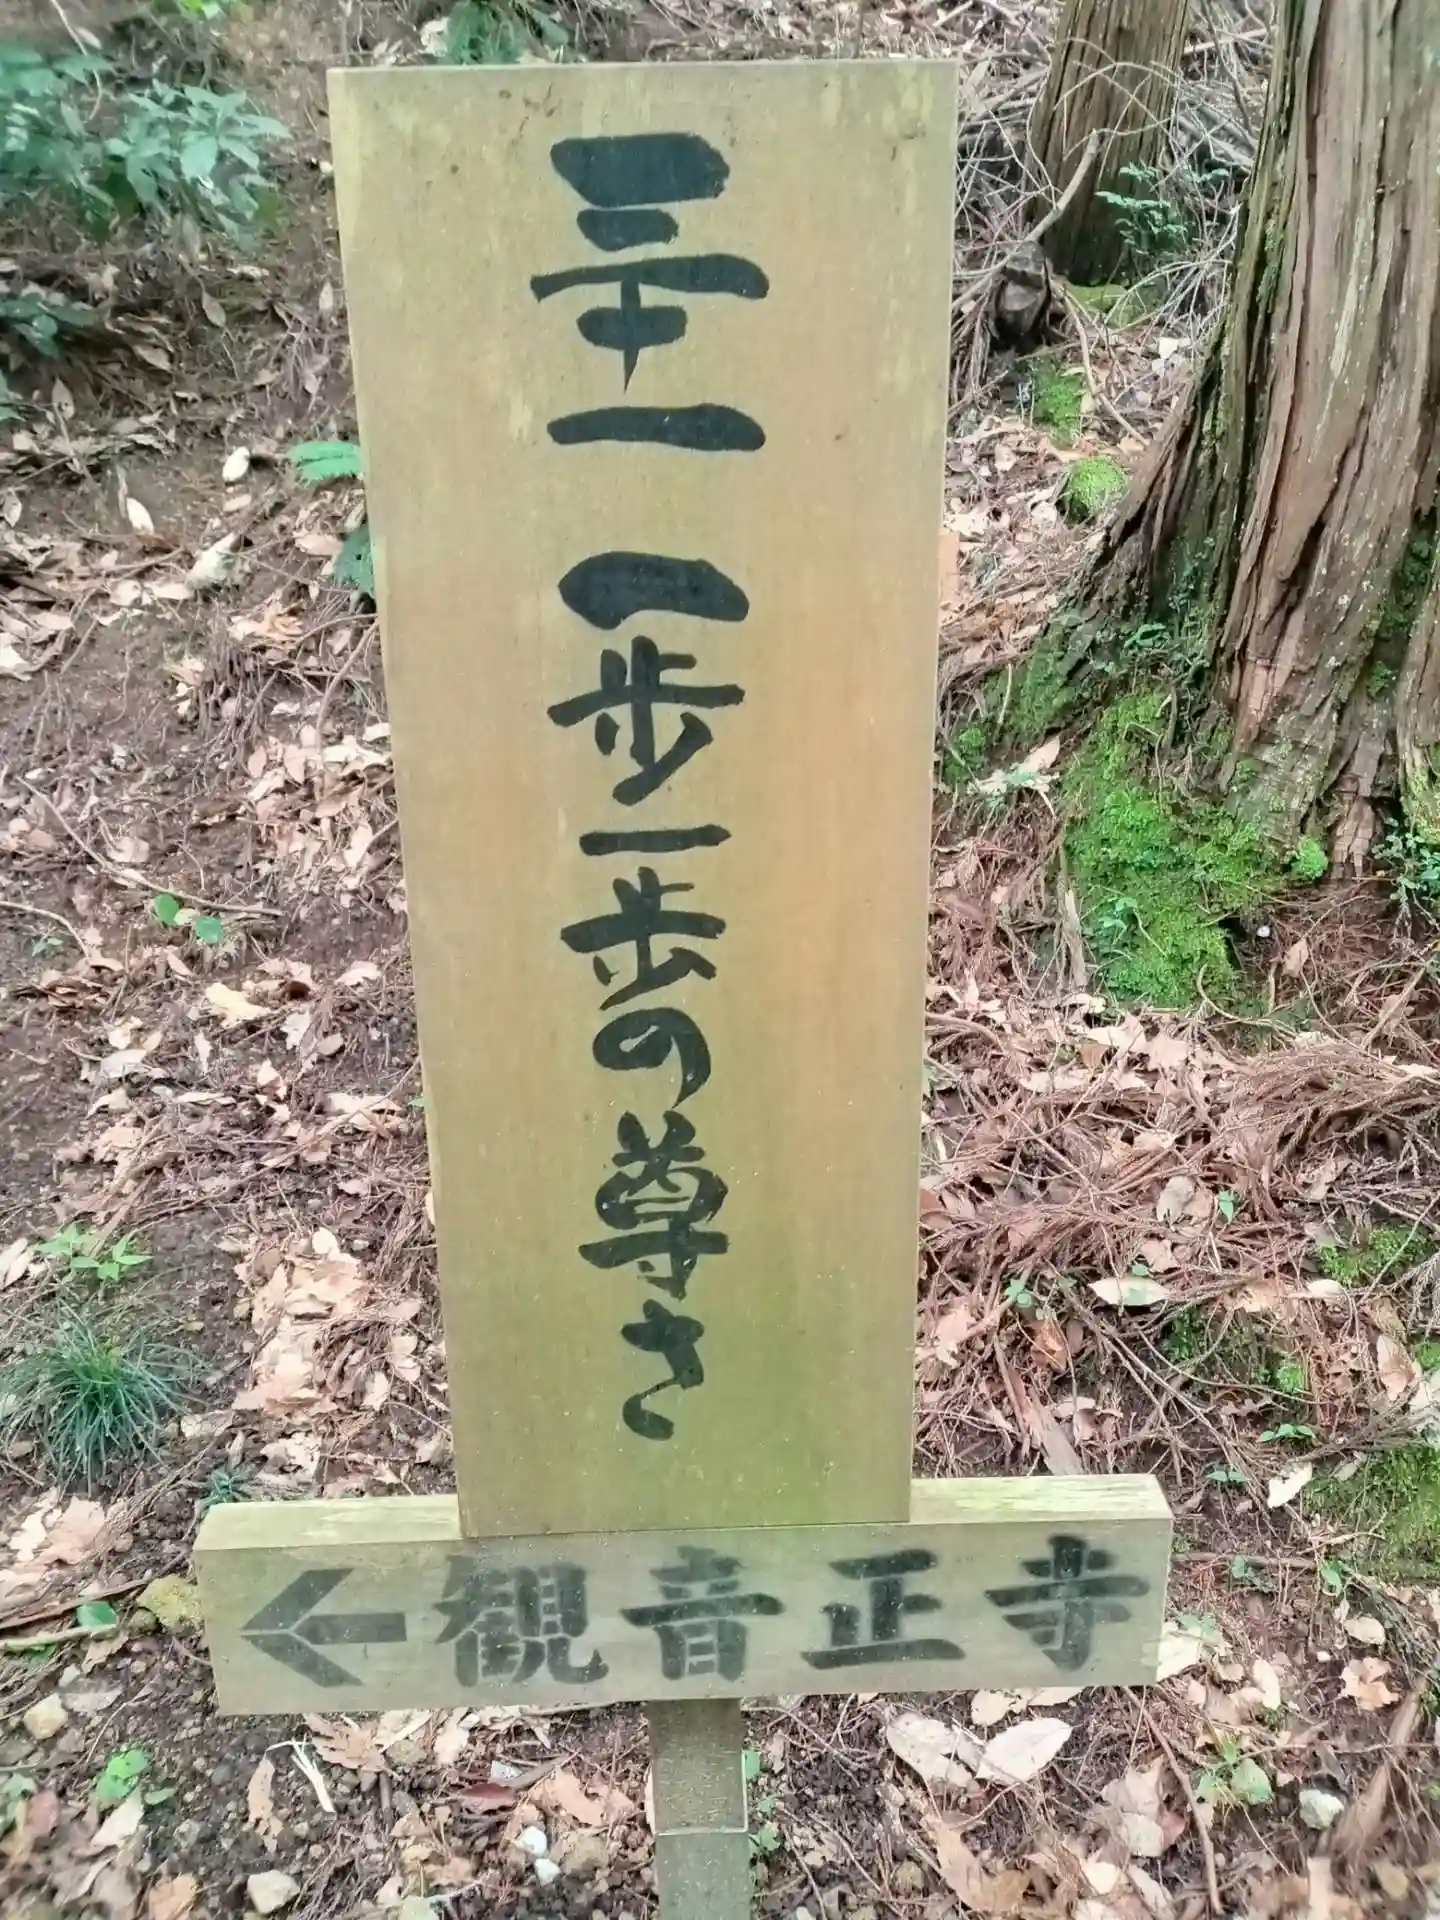 三十一 一歩一歩の尊さ
←観音正寺